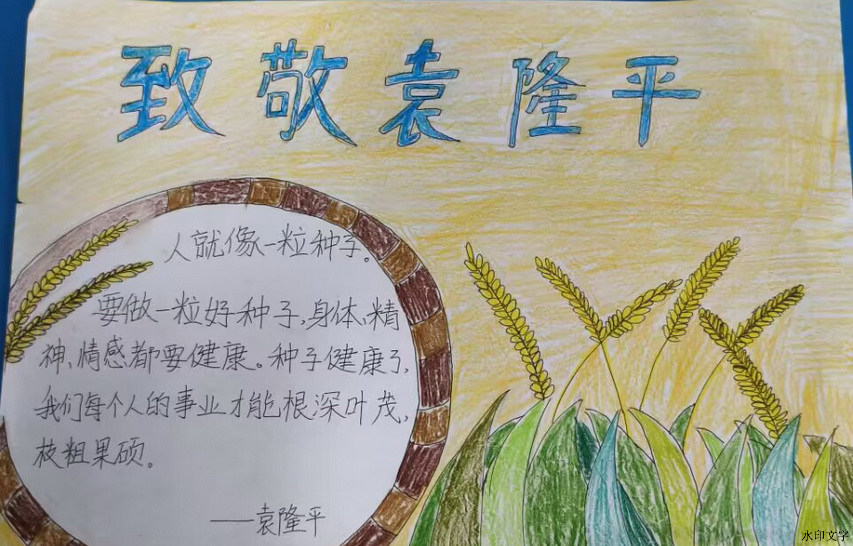 致敬袁隆平
人就像一粒种子。
要做一粒好种子,身体、精
神、情感都要健康。种子健康了,
我们每个人的事业才能根深叶茂,
枝粗果硕。
——袁隆平
水印文字